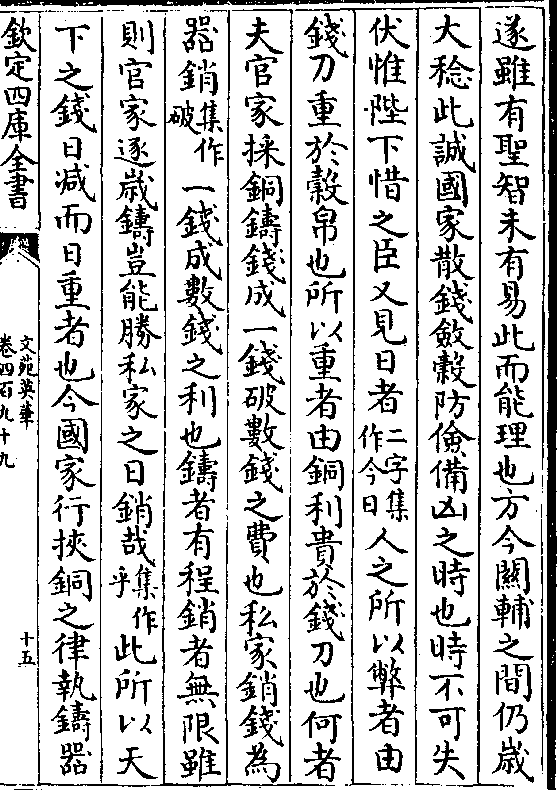 遂雖有聖智未有易此而能理也方今闗輔之間仍歲
大稔此誠國家散錢斂穀防儉備凶之時也時不可失
伏惟陛下惜之臣又見日者二字集作今日人之所以弊者由
錢刀重於穀帛也所以重者由銅利貴於錢刀也何者
夫官家採銅鑄錢成一錢破數錢之費也私家銷錢為
器銷集作破一錢成數錢之利也鑄者有程銷者無限雖
則官家逐歲鑄豈能勝私家之日銷哉集作乎此所以天
下之錢日減而日重者也今國家行挾銅之律執鑄器
欽定四庫全書
文苑英華
卷四百九十九
十五